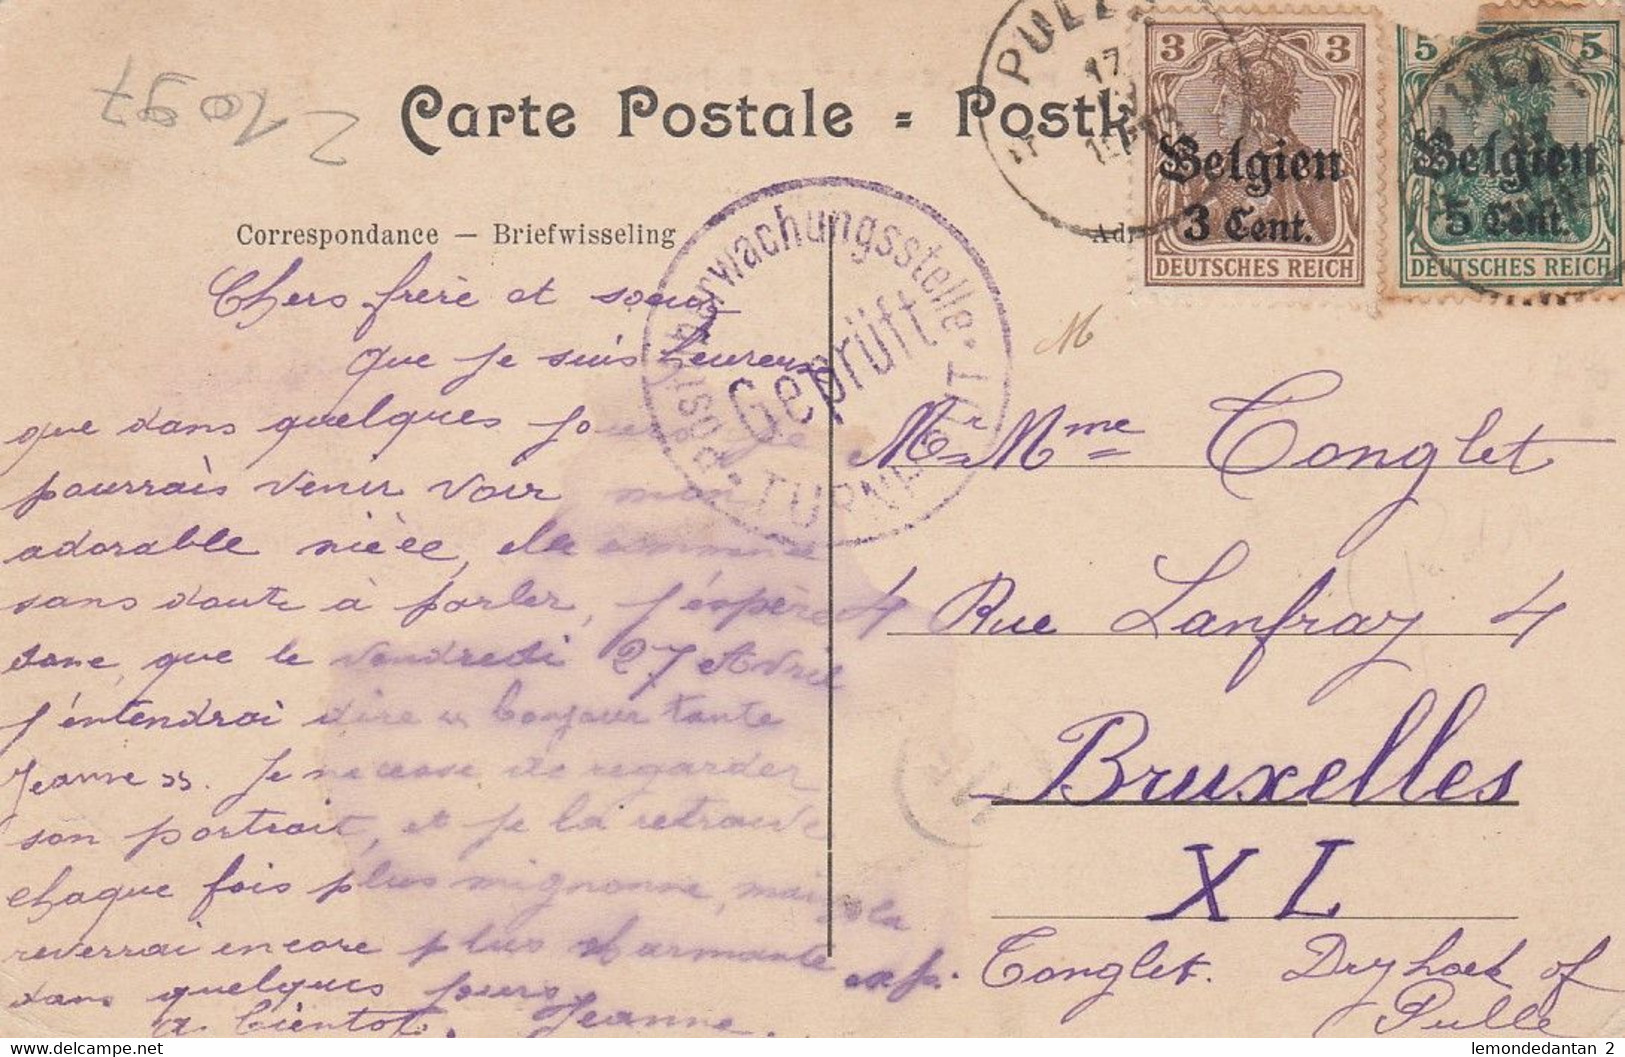 21097
Carte Postale = Postk
PULLE
17
3 3
Belgien
3 Cent.
DEUTSCHES REICH
5 5
Belgien
5 Cent.
DEUTSCHES REICH
Correspondance — Briefwisseling
Adr
Postüberwachungsstelle
Geprüft
TURNHOUT
M
Chers frère et soeur
Que je suis heureuse
que dans quelques jours je
pourrais venir voir mon
adorable nièce, elle commence
sans doute à parler, j'éspère
donc, que le vendredi 27 Avril
j'entendrai dire « bonjour tante
Jeanne ». Je ne cesse de regarder
son portrait, et je la retrouve
chaque fois plus mignonne, mais la
reverrai encore plus charmante
dans quelques jours.
a bientot. Jeanne.
Mr Mme Tonglet
4 Rue Lanfray 4
Bruxelles
XL
exp. Tonglet. Dryhoek of
Pulle
lemondedantan 2